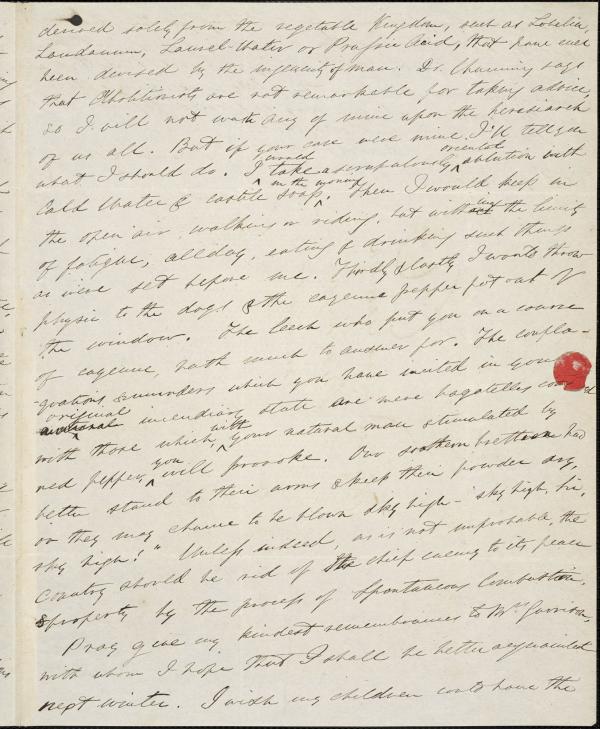 derived solely from the vegetable Kingdom, such as Lobelia,
Laudanum, Laurel-Water or Prussic Acid, that have ever
been devised by the ingenuity of man. Dr. Channing says
that Abolitionists are not remarkable for taking advice,
so I will not waste any of mine upon the heresiarch
of us all. But if your case were mine, I'll tell you
what I should do. I would take a scrupulously oriental ablution with
Cold Water & castile soap in the morning. Then I would keep in
the open air, walking or riding, but without the
of fatigue, all day, eating & drinking such things
as were set before me. Thirdly & lastly I would throw
physic to the dogs & the cayenne pepper pot out of
the window. The leech who put you on a course
of cayenne, hath much to answer for. The confla-
-grations & murders which you have incited in your
original incendiary state are mere bagatelles compared
with those which with your natural man stimulated by
red pepper, you will provoke. Our southern brethren had
better stand to their arms & keep their powder dry,
or they may chance to be blown sky high - "sky high, Sir,
sky high!" Unless indeed, as is not improbable, the
Country should be rid of the chief enemy to its peace
& property by the process of Spontaneous Combustion.
Pray give my kindest remembrances to Mrs Garrison,
with whom I hope that I shall be better acquainted
next winter. I wish my children could have the